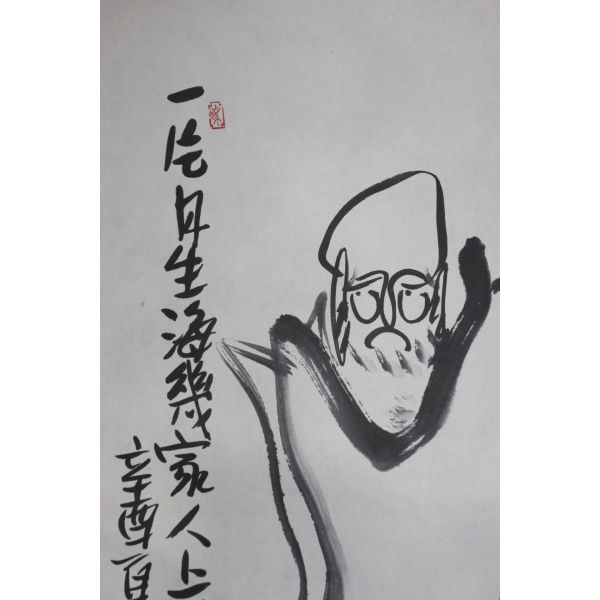 一片月生海幾家人上
辛酉